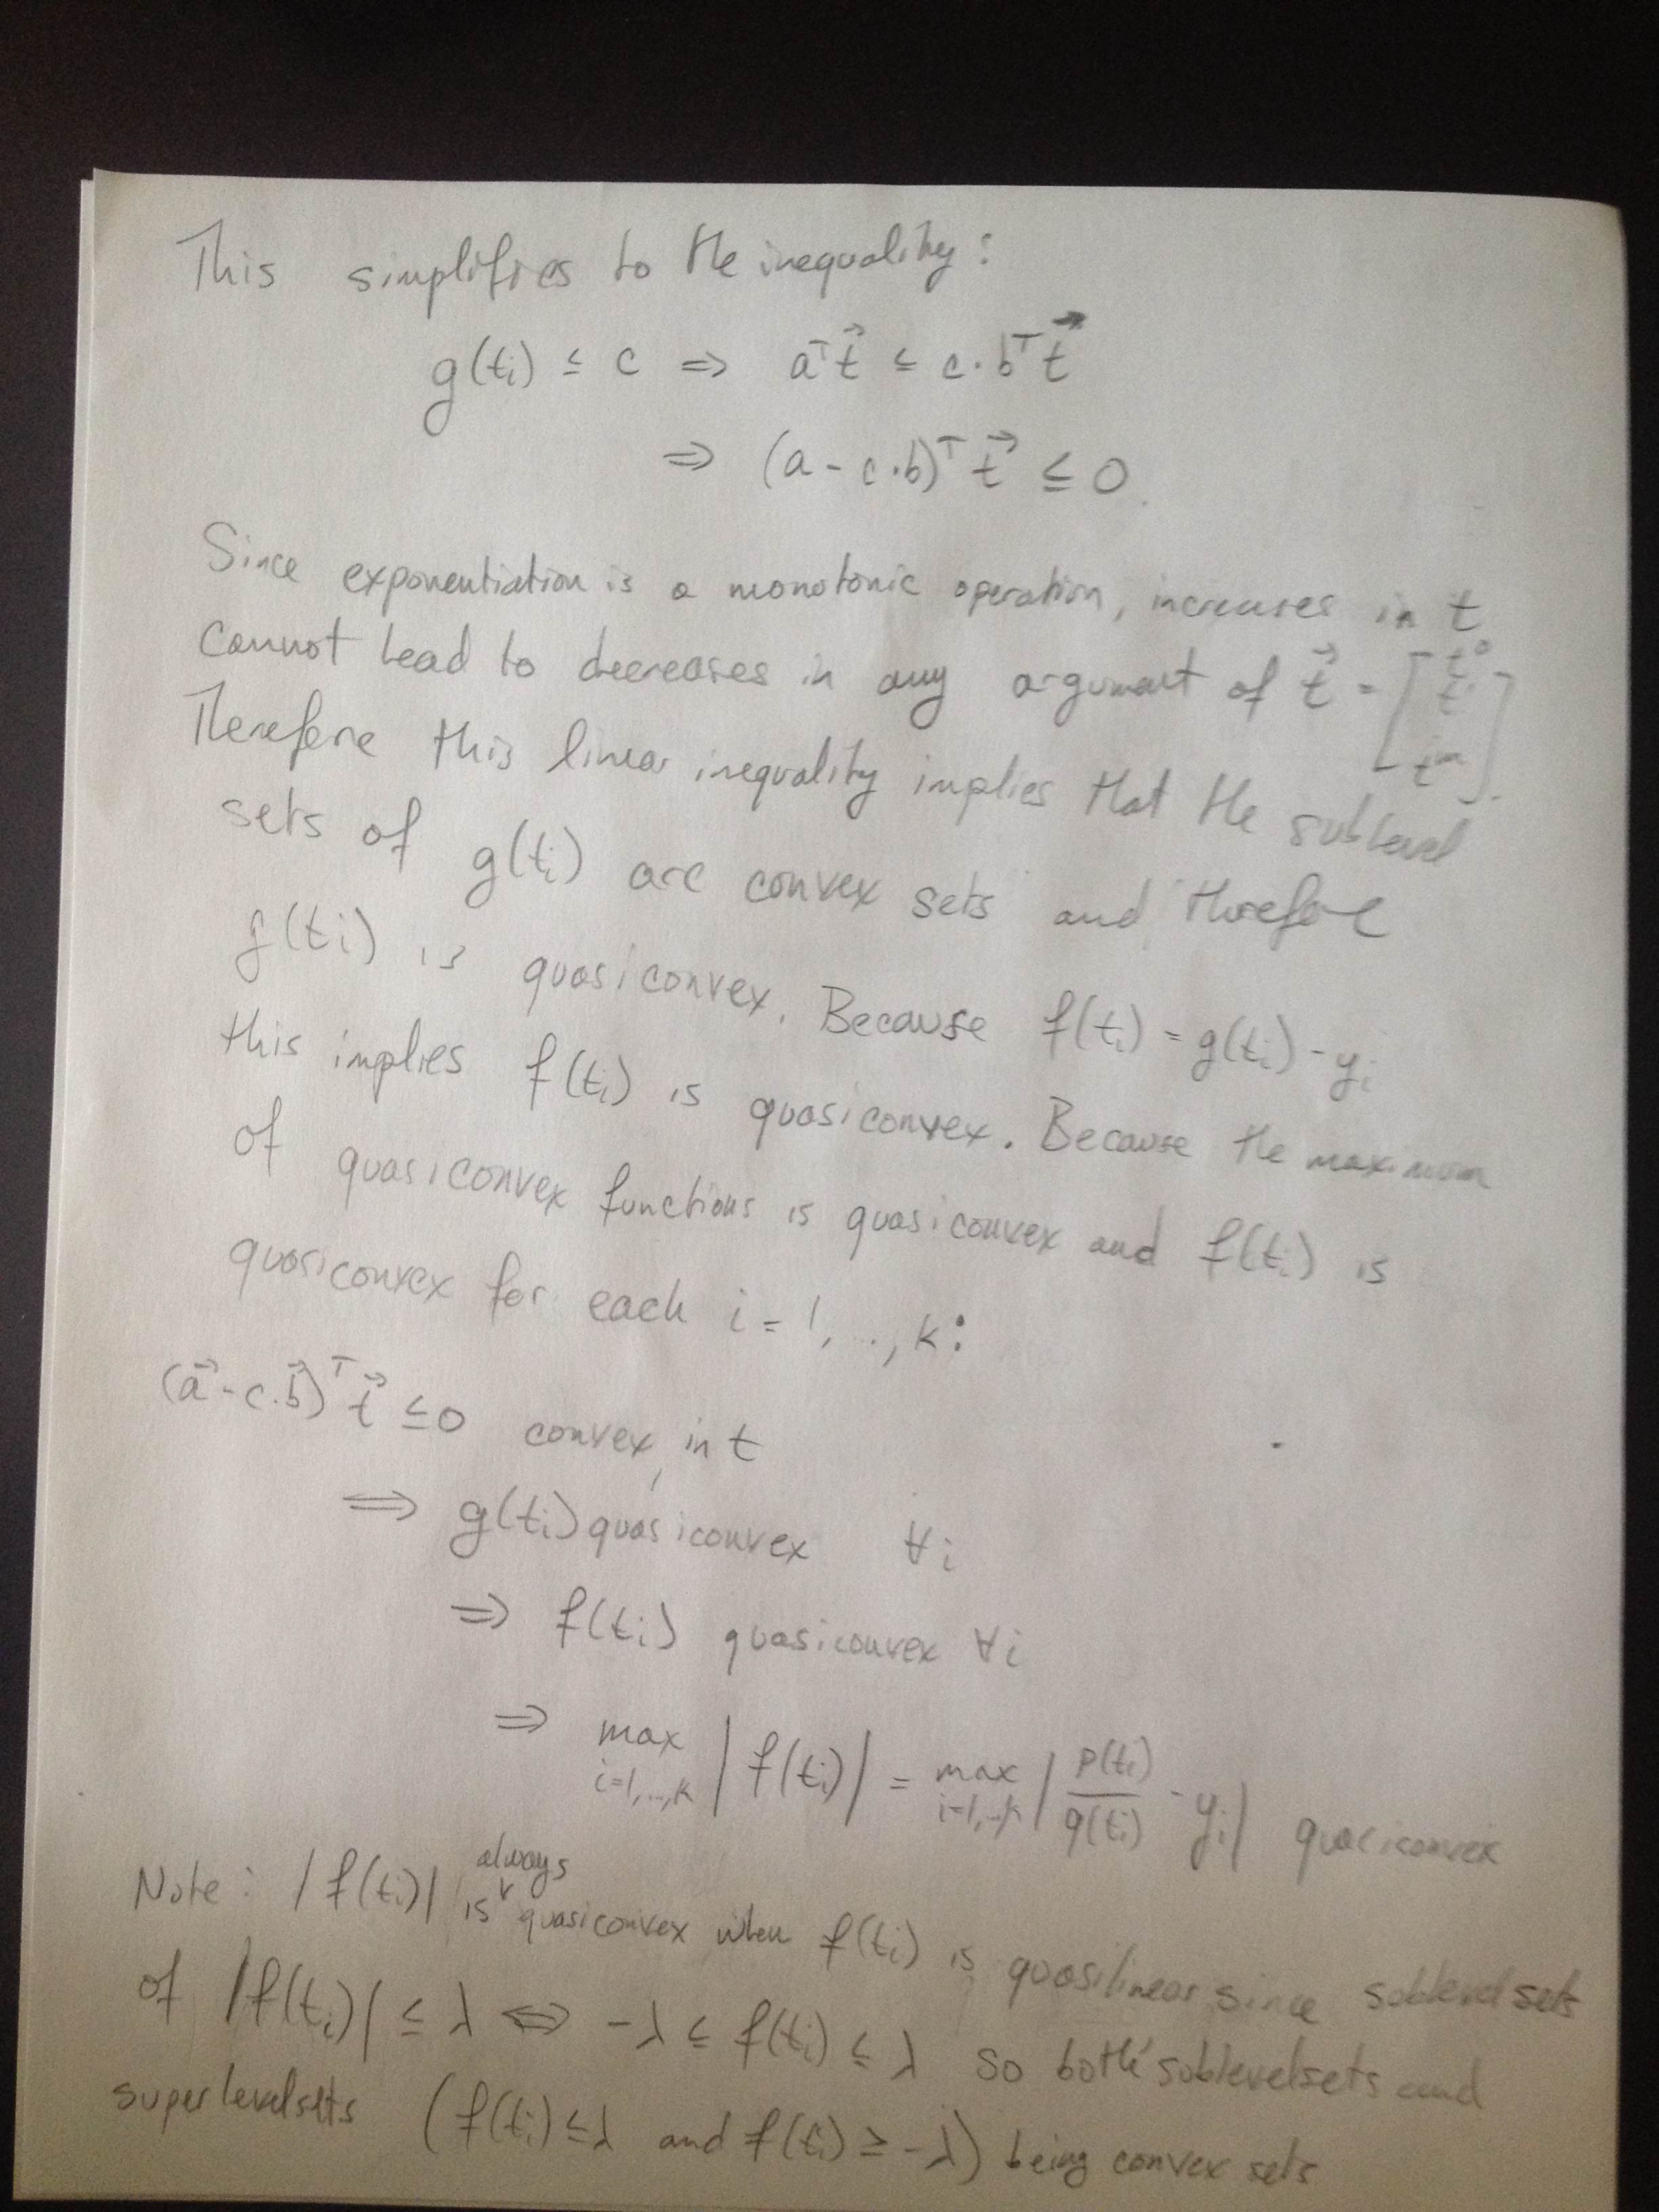 This simplifies to the inequality:
g(tᵢ) ≤ c ⇒ aᵀt⃗ ≤ c·bᵀt⃗
⇒ (a - c·b)ᵀ t⃗ ≤ 0.
Since exponentiation is a monotonic operation, increases in t
cannot lead to decreases in any argument of t⃗ = [t⁰ t¹ ... tᵐ].
Therefore this linear inequality implies that the sublevel
sets of g(tᵢ) are convex sets and therefore
g(tᵢ) is quasiconvex. Because f(tᵢ) = g(tᵢ) - yᵢ
this implies f(tᵢ) is quasiconvex. Because the maximum
of quasiconvex functions is quasiconvex and f(tᵢ) is
quasiconvex for each i = 1, .., k:
(a⃗ - c·b⃗)ᵀ t⃗ ≤ 0 convex in t
⇒ g(tᵢ) quasiconvex ∀i
⇒ f(tᵢ) quasiconvex ∀i
⇒ max i=1,..,k |f(tᵢ)| = max i=1,..,k |p(tᵢ)/q(tᵢ) - yᵢ| quasiconvex
Note: |f(tᵢ)| is always quasiconvex when f(tᵢ) is quasilinear since sublevelsets
of |f(tᵢ)| ≤ λ ⇔ -λ ≤ f(tᵢ) ≤ λ so both sublevelsets and
superlevelsets (f(tᵢ) ≤ λ and f(tᵢ) ≥ -λ) being convex sets